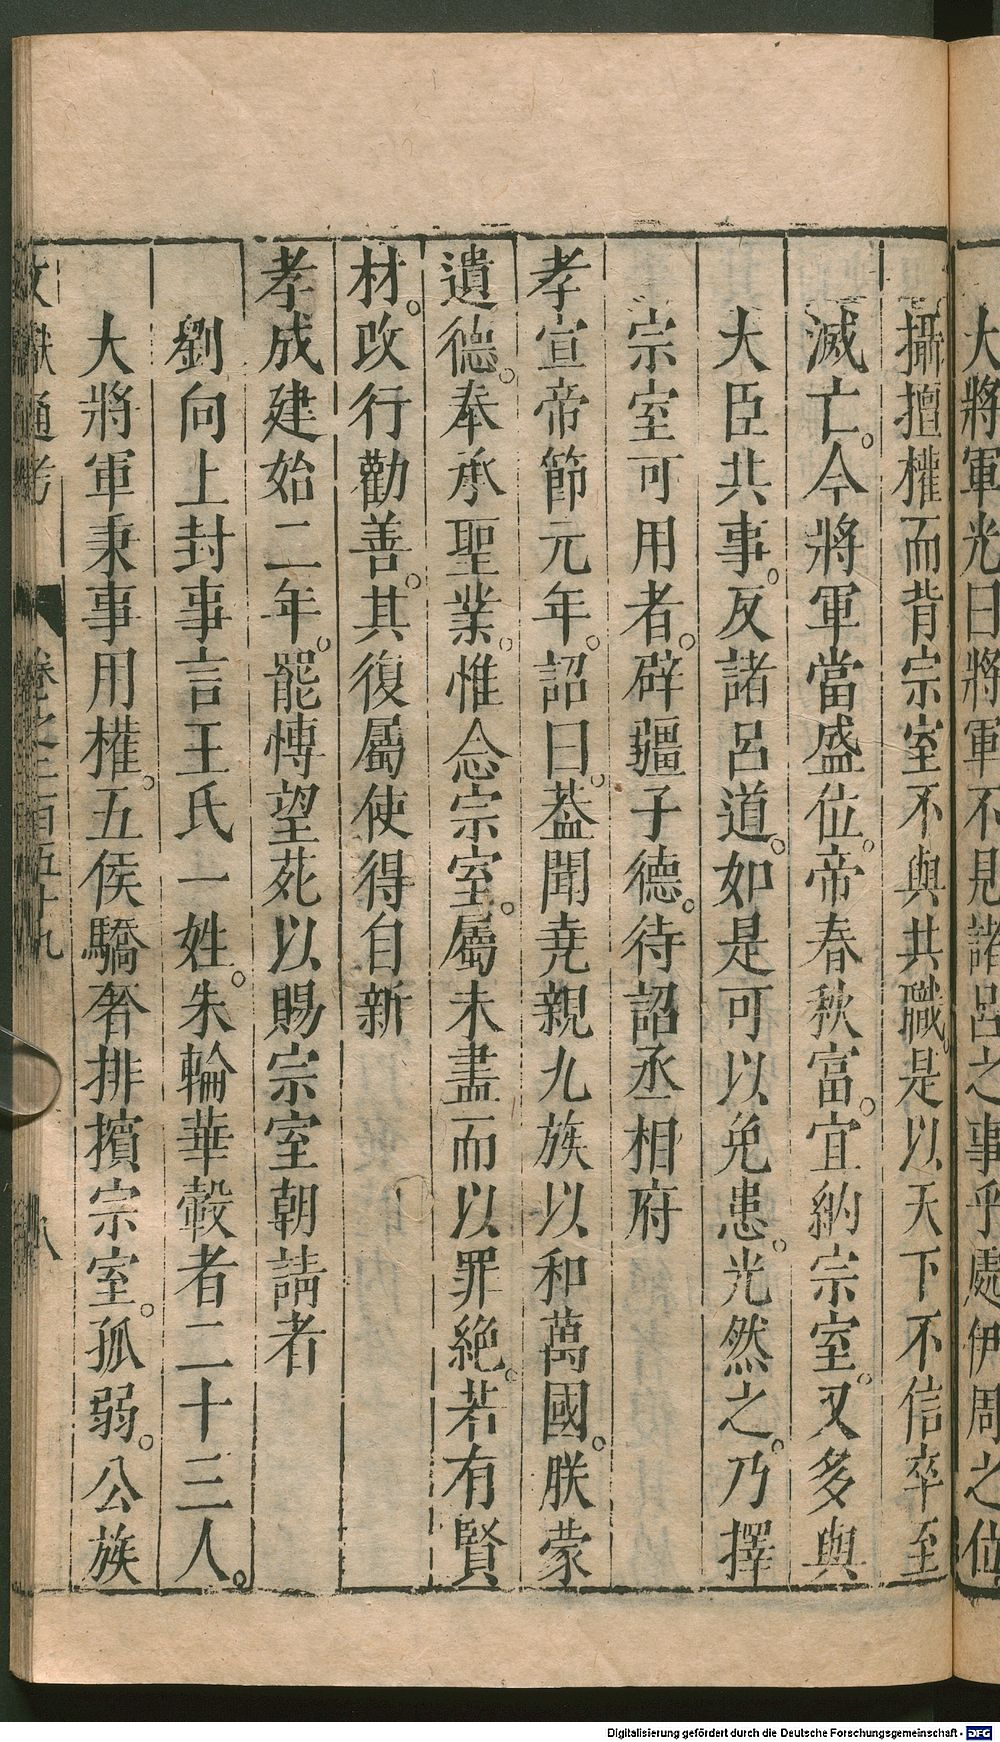 大將軍光曰將軍不見諸呂之事乎處伊周之位
攝擅權而背宗室不與共職。是以天下不信卒至
滅亡。今將軍當盛位。帝春秋富。宜納宗室。又多與
大臣共事。反諸呂道。如是可以免患。光然之。乃擇
宗室可用者。辟疆子德。待詔丞相府
孝宣帝節元年。詔曰。葢聞堯親九族以和萬國。朕蒙
遺德。奉承聖業。惟念宗室。屬未盡而以罪絶。若有賢
材。改行勸善。其復屬使得自新
孝成建始二年。罷愽望苑以賜宗室朝請者
劉向上封事言王氏一姓。朱輪華轂者二十三人。
大將軍秉事用權。五侯驕奢排擯宗室。孤弱。公族
文獻通考 卷之二百五十九 八
Digitalisierung gefördert durch die Deutsche Forschungsgemeinschaft - DFG